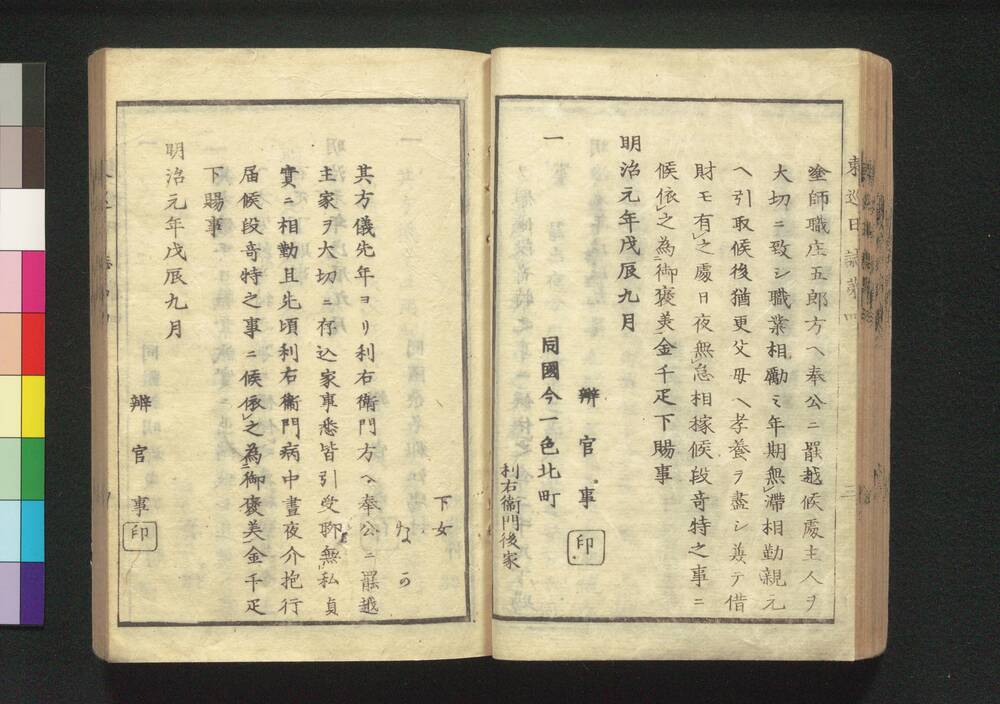 東巡日誌第四
塗師職庄五郎方ヘ奉公ニ罷越候處主人ヲ
大切ニ致シ職業相勵ミ年期無滯相勤親元
ヘ引取候後猶更父母ヘ孝養ヲ盡シ兼テ借
財モ有之處日夜無怠相稼候段奇特之事ニ
候依之為御褒美金千疋下賜事
明治元年戊辰九月
辨官事 印
一 同國今一色北町
利右衞門後家
下女
か
其方儀先年ヨリ利右衞門方ヘ奉公ニ罷越
主家ヲ大切ニ存込家事悉皆引受聊無私貞
實ニ相勤且先頃利右衞門病中晝夜介抱行
届候段奇特之事ニ候依之為御褒美金千疋
下賜事
明治元年戊辰九月
辨官事 印